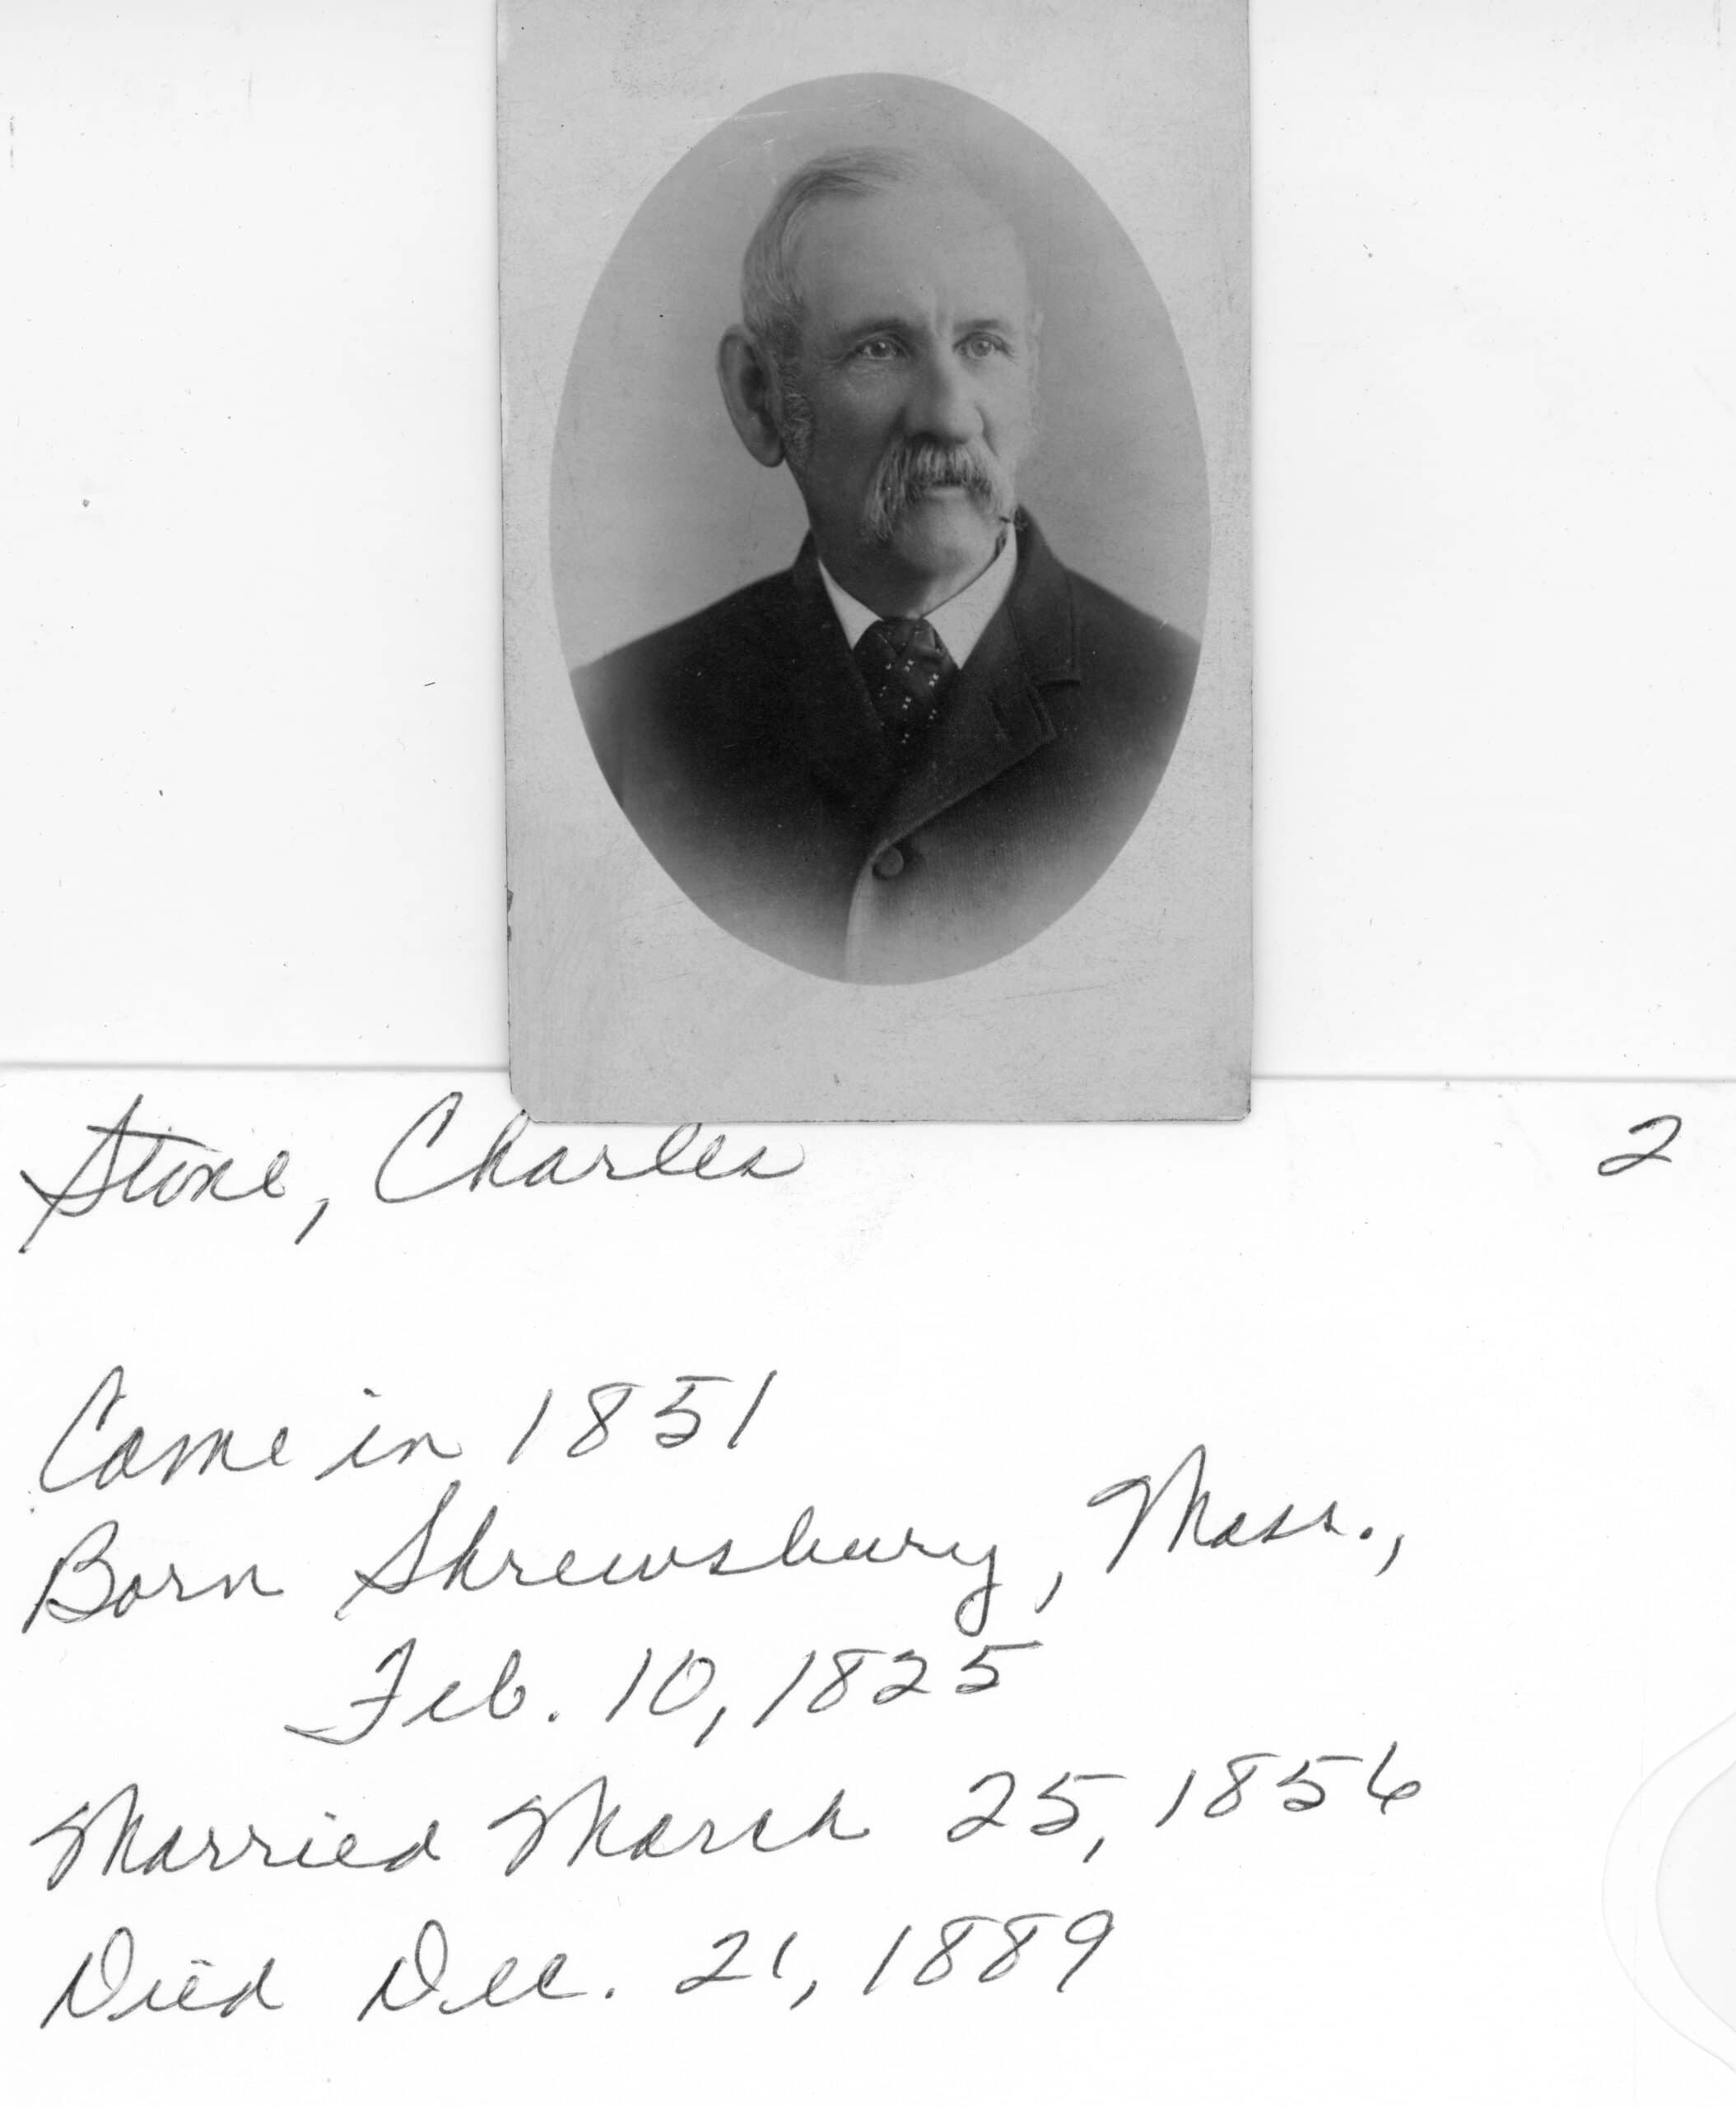 Stone, Charles 2
Came in 1851
Born Shrewsbury, Mass.,
Feb. 10, 1825
Married March 25, 1856
Died Dec. 21, 1889